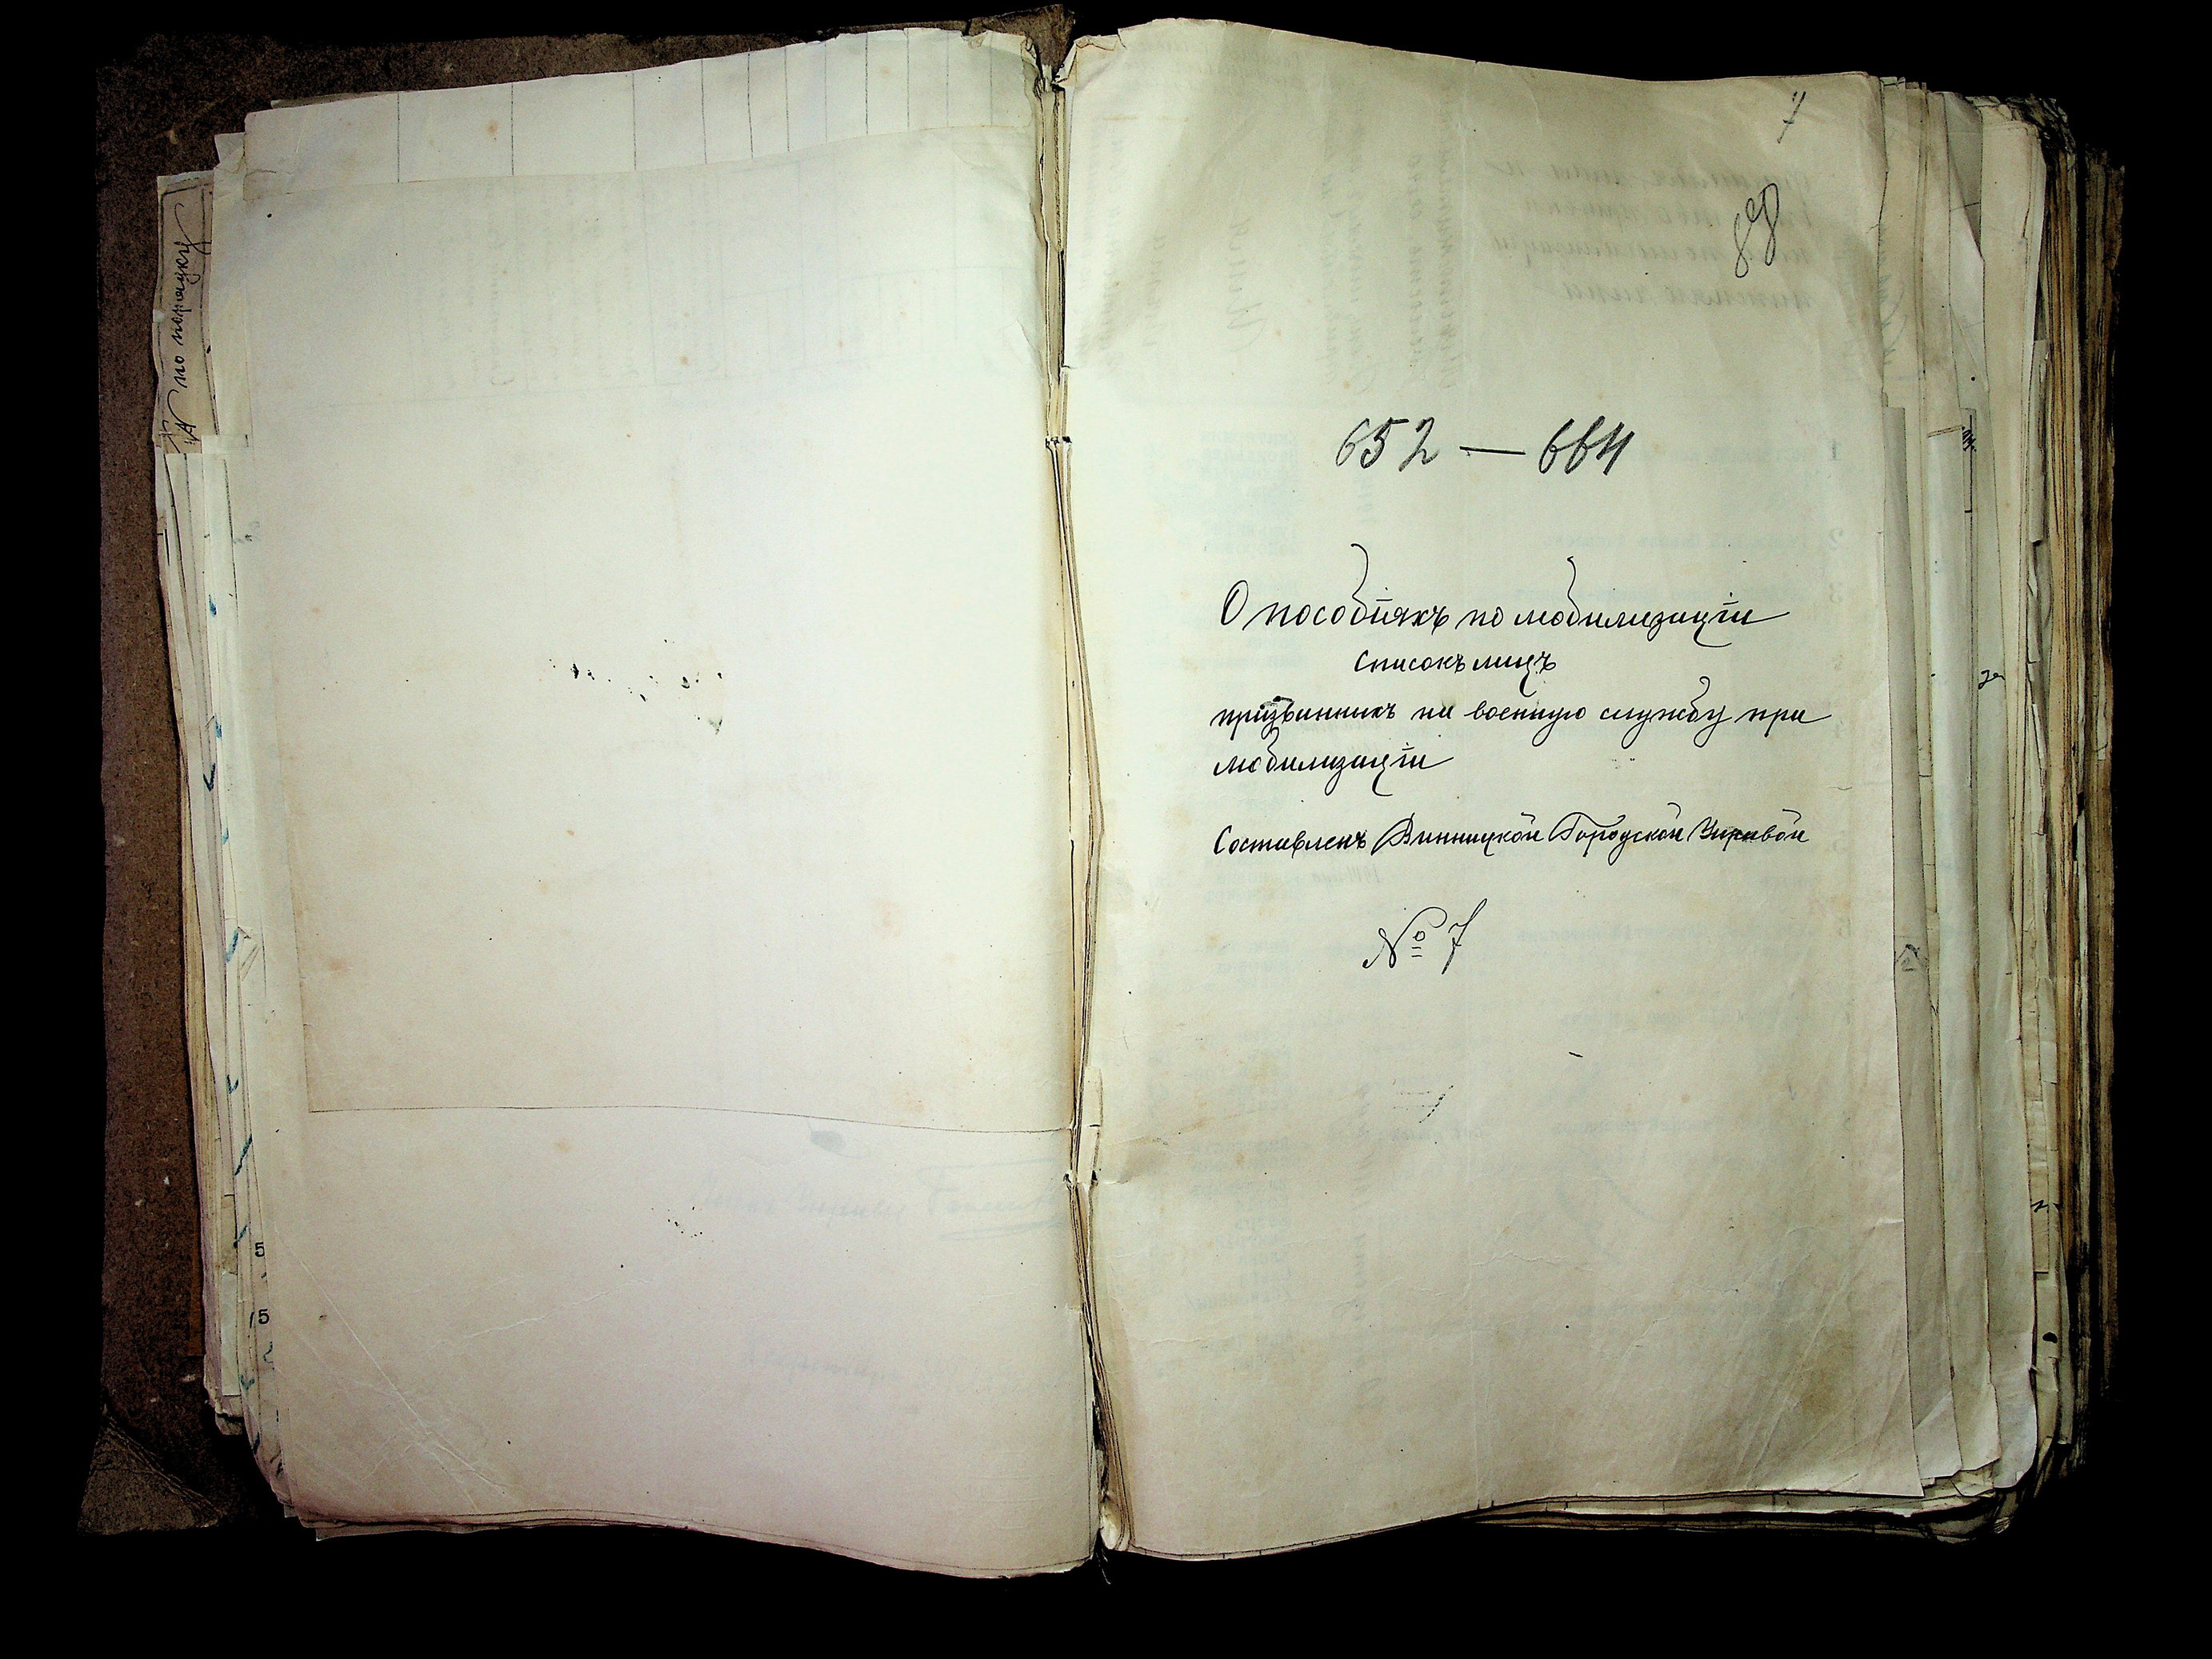 № по порядку
5
15
7
652 — 664
О пособіяхъ по мобилизаціи
Списокъ лицъ
призванныхъ на военную службу при
мобилизаціи
Составленъ Винницкой Городской Управой
№ 7